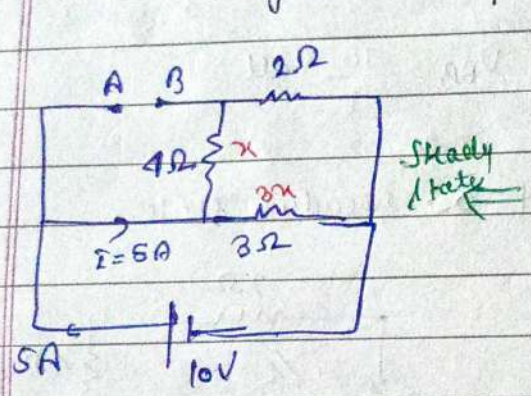 A B 2Ω
4Ω x
3x
Steady
state
I=5A 3Ω
5A 10V